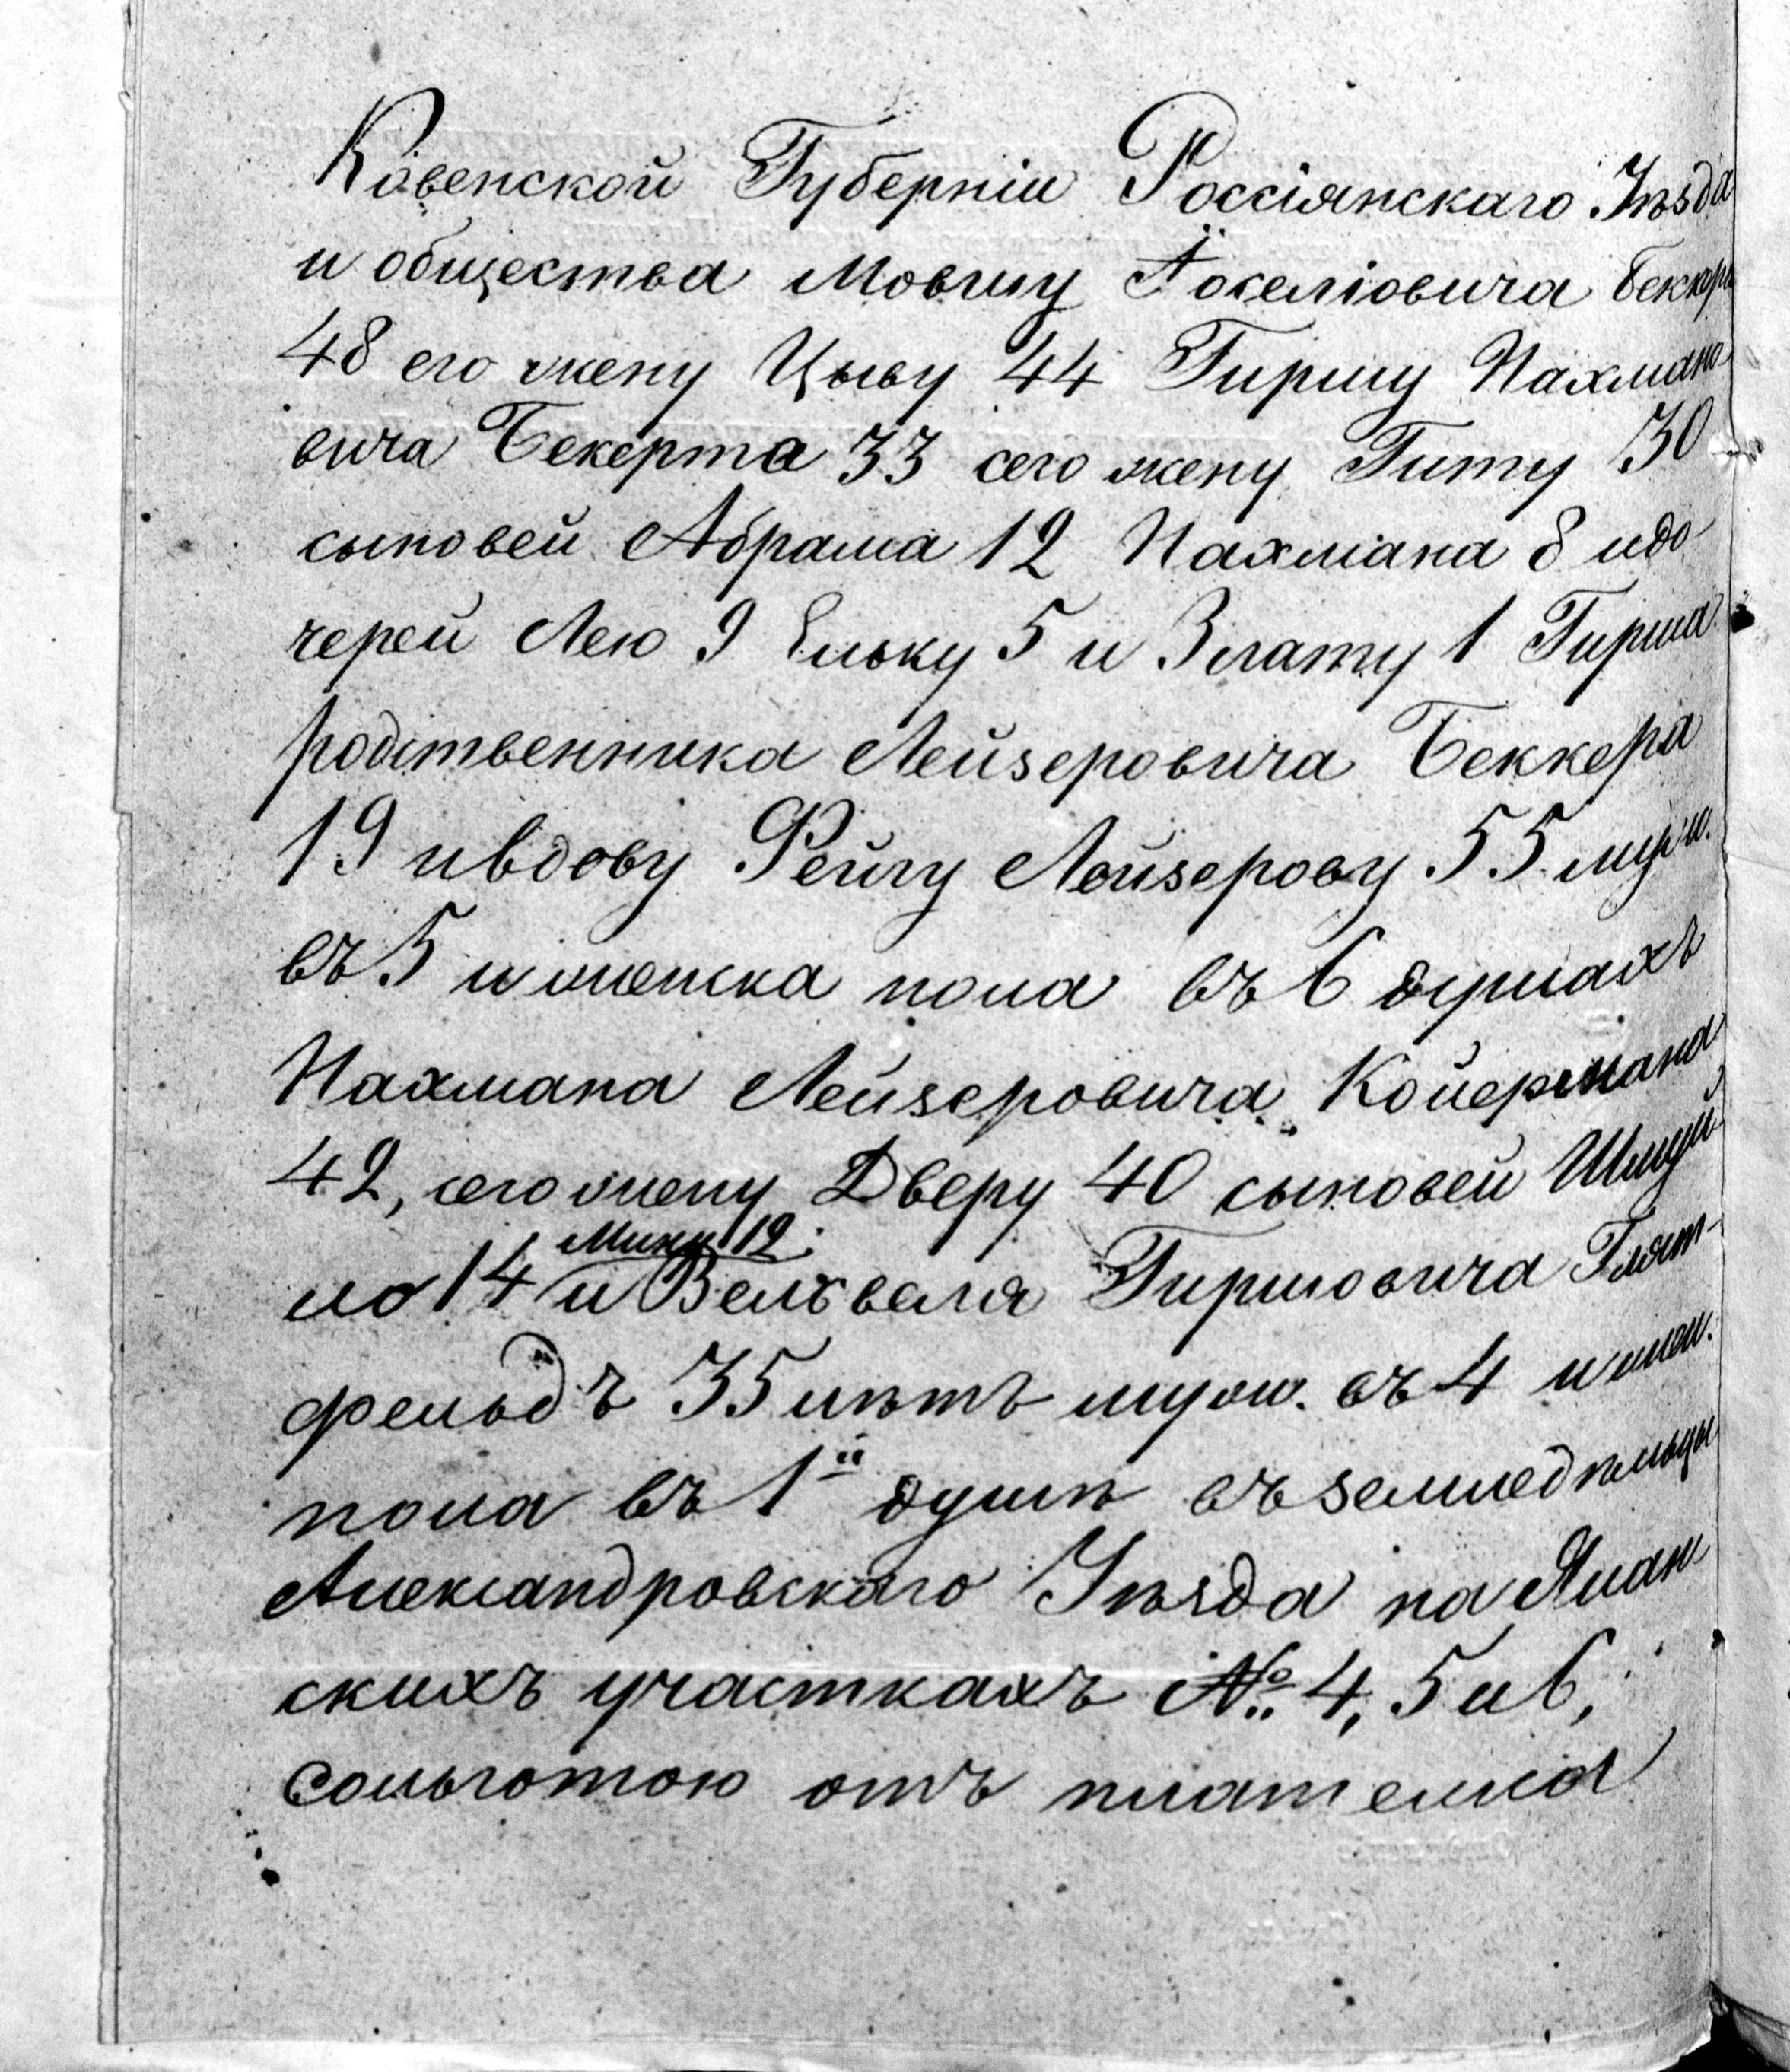 Ковенской Губерніи Россіянскаго Уѣзда
и общества Мовшу Іоселіовича Беккера
48 его жену Цыву 44 Гиршу Нахмано-
вича Бекерта 33 сего жену Гиту 30
сыновей Абрама 12 Нахмана 8 идо-
черей Лею 9 Ельку 5 и Злату 1 Гирша
родственника Лейзеровича Беккера
19 ивдову Фейгу Лейзерову 55 муж.
въ 5 и женска пола въ 6 душахъ
Нахмана Лейзеровича Койермана
42, сего жену Дверу 40 сыновей Шмуй-
ло 14 Мику 12 и Велвеля Гиршовича Глат-
фельдъ 35 лѣтъ муж. въ 4 и жен.
пола въ 1й душѣ въ земледѣльцы
Александровскаго Уѣзда на
скихъ участкахъ № 4, 5 и 6,
сольготою отъ платежа